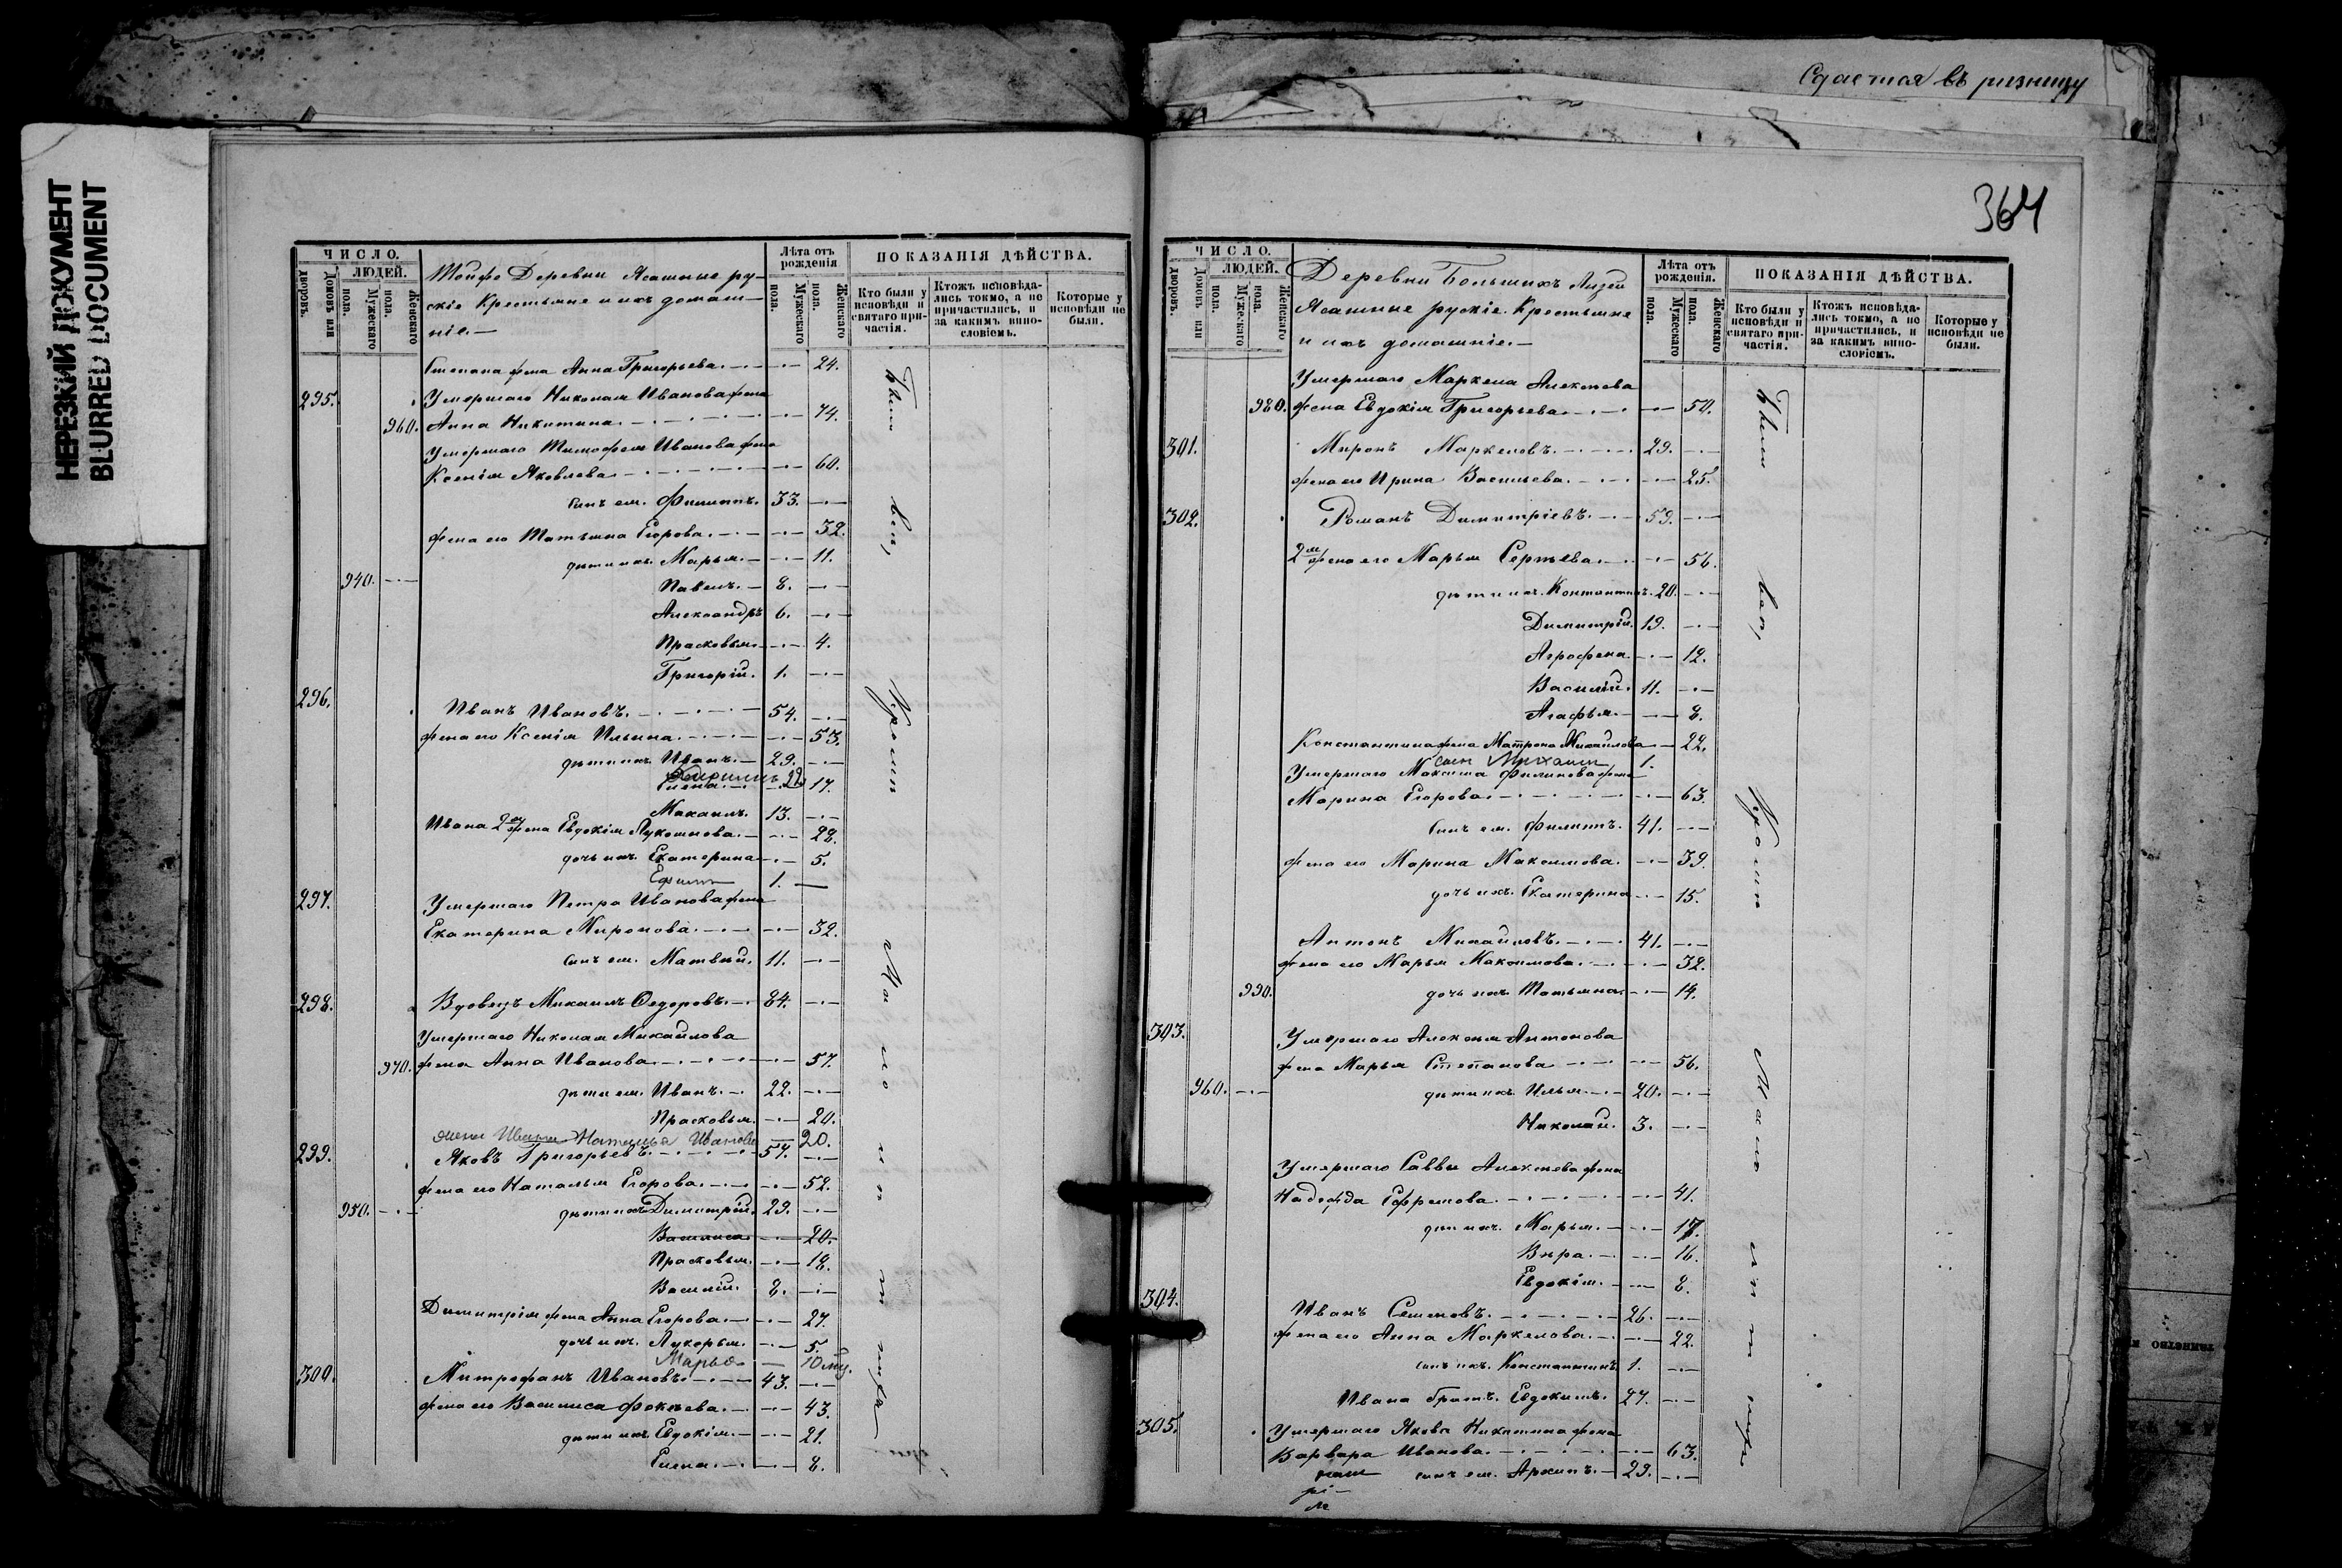 НЕРЕЗКИЙ ДОКУМЕНТ
BLURRED DOCUMENT
Сдается въ ризницу
364
ЧИСЛО.
ЛЮДЕЙ.
Домовъ или дворовъ.
Мужескаго пола.
Женскаго пола.
Тойже Деревни Ясашные ру-
скіе Крестьяне и ихъ домаш-
ніе.—
Лѣта отъ рожденія
Мужескаго пола.
Женскаго пола.
ПОКАЗАНІЯ ДѢЙСТВА.
Кто были у исповѣди и святаго причастія.
Ктожъ исповѣдались токмо, а не причастились, и за какимъ винословіемъ.
Которые у исповѣди не были.
Степана жена Анна Григорьева. 24.
295. Умершаго Николая Иванова жена
960. Анна Никитина. 74.
Умершаго Тимофея Иванова жена
Ксенія Яковлева 60.
сынъ ея. Филиппъ. 33.
жена его Татьяна Егорова. 32.
дѣти ихъ. Марья. 11.
940. Павелъ. 8.
Александръ 6.
Прасковья 4.
Григорій. 1.
296. Иванъ Ивановъ. 54.
жена его Ксенія Ильина. 53.
дѣти ихъ Иванъ. 29.
22
Елена. 17.
Михаилъ. 13.
Ивана 2я жена Евдокія Лукоянова. 28.
дочь ихъ. Екатерина 5.
Ефимъ 1.
297. Умершаго Петра Иванова жена
Екатерина Миронова. 32.
сынъ ея. Матвѣй. 11.
298. Вдовецъ Михаилъ Ѳедоровъ. 84.
Умершаго Николая Михайлова
970. жена Анна Иванова 57.
дѣти ея. Иванъ. 22.
Прасковья. 20.
жена Ивана Наталья Иванова 20.
299. Яковъ Григорьевъ. 57.
жена его Наталья Егорова. 52.
950. дѣти ихъ Димитрій. 29.
Василиса 20.
Прасковья. 18.
Василій. 8.
Димитрія жена Анна Егорова. 27.
дочь ихъ. Лукерья. 5.
Марья 10 мц.
300. Митрофанъ Ивановъ. 43.
жена его Василиса Фокѣева. 43.
дѣти ихъ Евдокія. 21.
Елена. 8.
Были всѣ, кромѣ малолѣтнихъ
ЧИСЛО.
ЛЮДЕЙ.
Домовъ или дворовъ.
Мужескаго пола.
Женскаго пола.
Деревни Большихъ
Ясашные рускіе Крестьяне
и ихъ домашніе.—
Лѣта отъ рожденія.
Мужескаго пола.
Женскаго пола.
ПОКАЗАНІЯ ДѢЙСТВА.
Кто были у исповѣди и святаго причастія.
Ктожъ исповѣдались токмо, а не причастились, и за какимъ винословіемъ.
Которые у исповѣди не были.
Умершаго Маркела Алексѣева
980. жена Евдокія Григорьева 50.
301. Миронъ Маркеловъ. 29.
жена его Ирина Васильева. 25.
302. Романъ Димитріевъ. 59.
2я жена его Марья Сергѣева. 56.
дѣти ихъ. Константинъ. 20.
Димитрій. 19.
Агрофена. 12.
Василій. 11.
Агафья. 8.
Константина жена Матрона Михайлова 22.
сын Михаилъ 1.
Умершаго Максима Филипова жена
Марина Егорова. 63.
сынъ ея. Филиппъ. 41.
жена его Марина Максимова. 39.
дочь ихъ. Екатерина 15.
Антонъ Михайловъ. 41.
жена его Марья Максимова. 32.
990. дочь ихъ Татьяна 14.
303. Умершаго Алексѣя Антонова
жена Марья Степанова 56.
960. дѣти ихъ Илья 20.
Николай. 3.
Умершаго Саввы Алексѣева жена
Надежда Ефремова. 41.
дѣти ихъ. Марья. 17.
Вѣра. 16.
Евдокія. 8.
304. Иванъ Семеновъ. 26.
жена его Анна Маркелова. 22.
сынъ ихъ. Константинъ 1.
Ивана братъ. Евдокимъ. 27.
305. Умершаго Якова Никитина жена
Варвара Иванова. 63.
сынъ ея. Архипъ. 29.
Были всѣ, кромѣ малолѣтнихъ